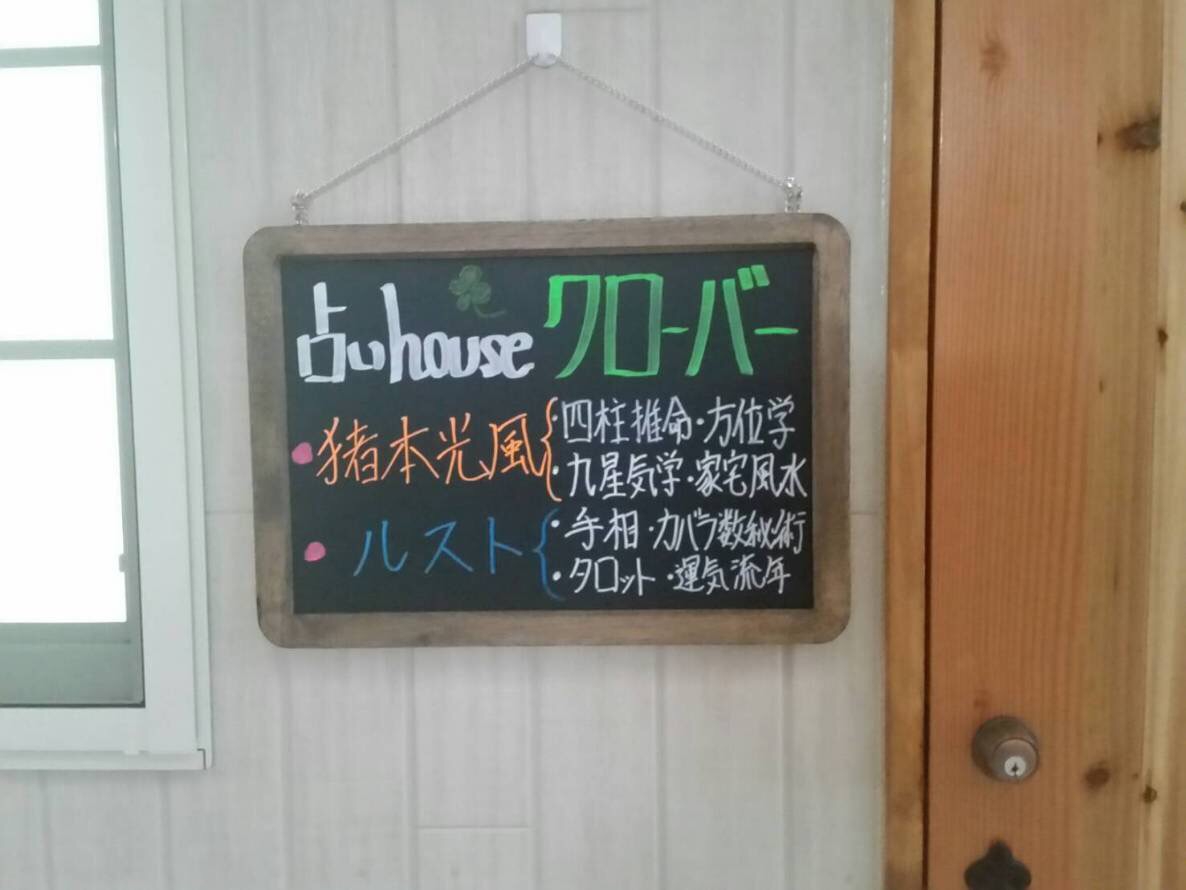 占いhouse クローバー
猪本光風
・四柱推命・方位学
・九星気学・家宅風水
ルスト
・手相・カバラ数秘術
・タロット・運気流年